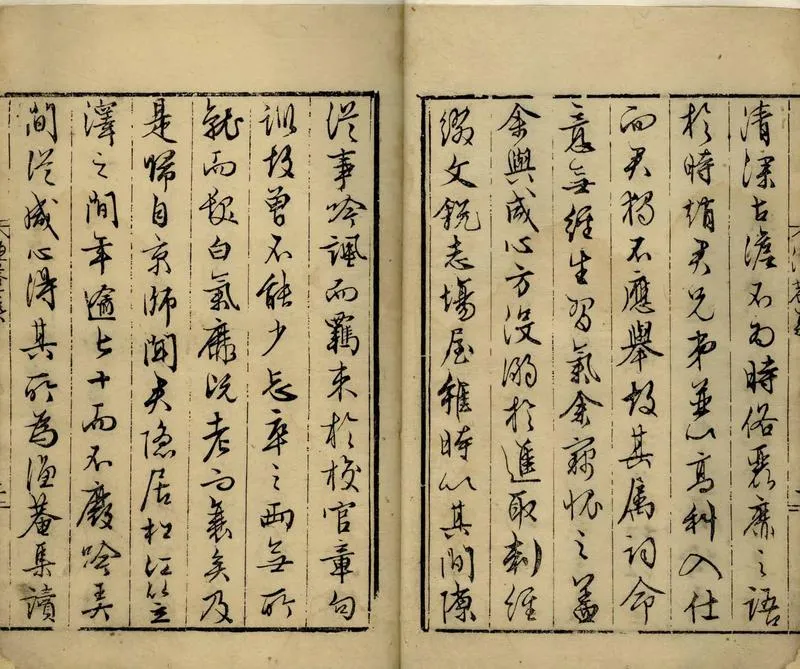 清深古澹不为時俗萎靡之語
於時趙君兄弟並以高科入仕
而君獨不應舉故其属詞命
意無經生習氣余竊愧之蓋
余與咸心方没溺於進取剽經
綴文銳志場屋雖時以其間隙
從事吟諷而羈束於校官章句
訓故曾不能少忘卒之兩無所
就而髮白氣靡况老而衰矣及
是歸自京師聞君隐居松江笠
澤之間年逾七十而不廢吟弄
間從咸心得其所為漁菴集讀